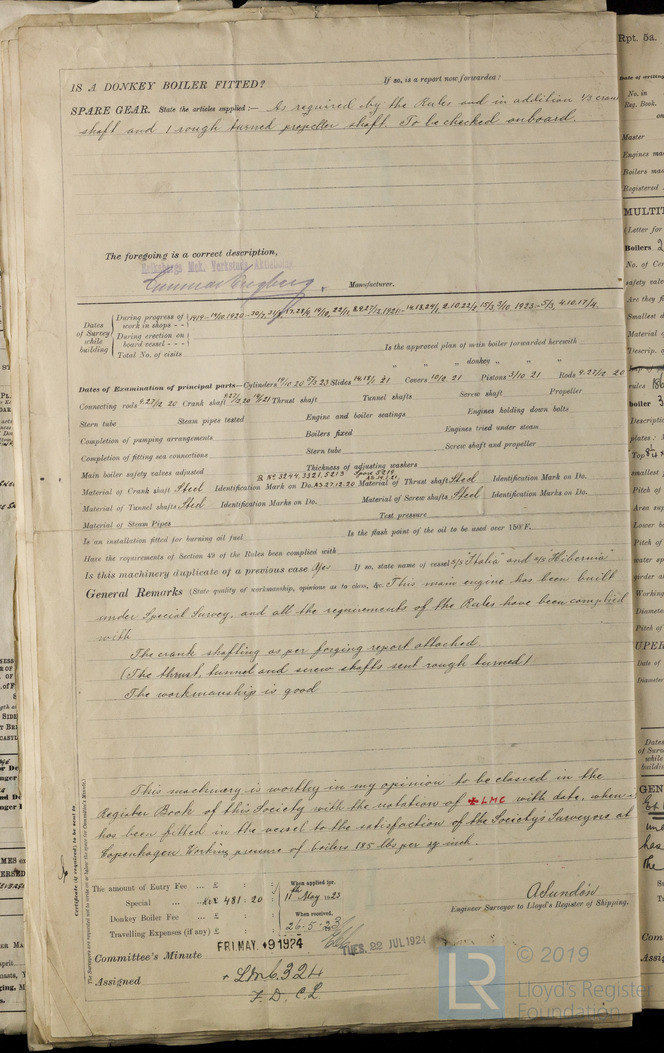 IS A DONKEY BOILER FITTED? If so, is a report now forwarded?
SPARE GEAR. State the articles supplied:— As required by the Rules and in addition 1/3 crank
shaft and 1 rough turned propeller shaft. To be checked onboard.
The foregoing is a correct description,
Manufacturer.
Dates of Survey while building
During progress of work in shops - -
During erection on board vessel - - -
Total No. of visits
Is the approved plan of main boiler forwarded herewith
" " " donkey " " "
Dates of Examination of principal parts—Cylinders Slides Covers 10/2 21 Pistons 3/10 21 Rods 4.27/2 20
Connecting rods 4.27/2 20 Crank shaft Thrust shaft Tunnel shafts Screw shaft Propeller
Stern tube Steam pipes tested Engine and boiler seatings Engines holding down bolts
Completion of pumping arrangements Boilers fixed Engines tried under steam
Completion of fitting sea connections Stern tube Screw shaft and propeller
Main boiler safety valves adjusted Thickness of adjusting washers
Material of Crank shaft Steel Identification Mark on Do. Material of Thrust shaft Steel Identification Mark on Do.
Material of Tunnel shafts Steel Identification Marks on Do. Material of Screw shafts Steel Identification Marks on Do.
Material of Steam Pipes Test pressure
Is an installation fitted for burning oil fuel Is the flash point of the oil to be used over 150°F.
Have the requirements of Section 49 of the Rules been complied with
Is this machinery duplicate of a previous case Yes If so, state name of vessel s/s "Italia" and s/s "Hibernia"
General Remarks (State quality of workmanship, opinions as to class, &c. This main engine has been built
under Special Survey, and all the requirements of the Rules have been complied
with
The crank shafting as per forging report attached.
(The thrust, tunnel and screw shafts sent rough turned)
The workmanship is good
This machinery is worthy in my opinion to be classed in the
Register Book of this Society with the notation of ✠LMC with date, when
has been fitted in the vessel to the satisfaction of the Society's Surveyors at
Copenhagen. Working pressure of boilers 185 lbs per sq inch.
Certificate (if required) to be sent to
The amount of Entry Fee ... £ : : When applied for,
Special ... Kr 481 : 20 : 11th May 1923
Donkey Boiler Fee ... £ : : When received,
Travelling Expenses (if any) £ : : 26.5.23
Engineer Surveyor to Lloyd's Register of Shipping.
Committee's Minute FRI. MAY. 9 1924 TUES. 22 JUL 1924
Assigned
© 2019
Lloyd's Register
Foundation
LR
Rpt. 5a.
No. in
Reg. Book.
Master
Registered
Boilers